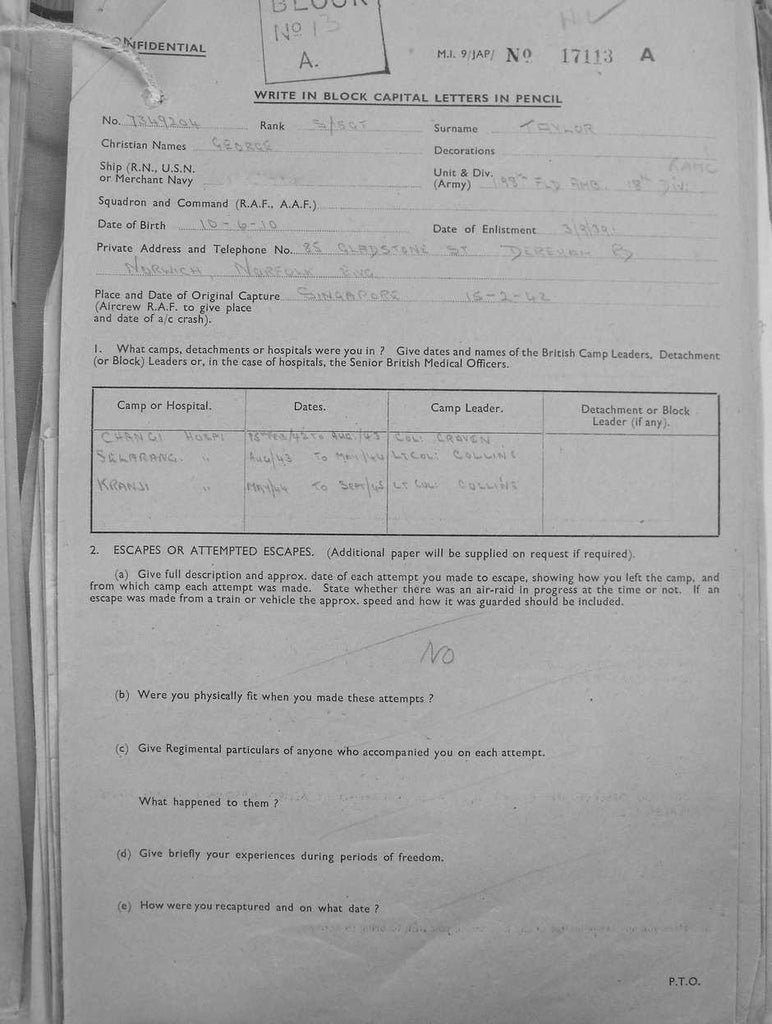 BLOCK
Nº 13
A.
CONFIDENTIAL
M.I. 9/JAP/ Nº 17113 A
WRITE IN BLOCK CAPITAL LETTERS IN PENCIL
No. 7349204 Rank S/SGT Surname TAYLOR
Christian Names GEORGE Decorations
Ship (R.N., U.S.N. or Merchant Navy
Unit & Div. (Army) 198TH FLD AMB. 18TH DIV. RAMC
Squadron and Command (R.A.F., A.A.F.)
Date of Birth 10-6-10 Date of Enlistment 3/9/39.
Private Address and Telephone No. 85 GLADSTONE ST DEREHAM RD
NORWICH, NORFOLK ENG
Place and Date of Original Capture SINGAPORE 15-2-42
(Aircrew R.A.F. to give place
and date of a/c crash).
1. What camps, detachments or hospitals were you in ? Give dates and names of the British Camp Leaders, Detachment
(or Block) Leaders or, in the case of hospitals, the Senior British Medical Officers.
Camp or Hospital. Dates. Camp Leader. Detachment or Block
Leader (if any).
CHANGI HOSPI 15TH FEB/42 TO AUG./43 COL: CRAVEN
SELARANG. " AUG/43 TO MAY/44 LT COL: COLLINS
KRANJI " MAY/44 TO SEPT/45 LT COL: COLLINS
2. ESCAPES OR ATTEMPTED ESCAPES. (Additional paper will be supplied on request if required).
(a) Give full description and approx. date of each attempt you made to escape, showing how you left the camp, and
from which camp each attempt was made. State whether there was an air-raid in progress at the time or not. If an
escape was made from a train or vehicle the approx. speed and how it was guarded should be included.
NO
(b) Were you physically fit when you made these attempts ?
(c) Give Regimental particulars of anyone who accompanied you on each attempt.
What happened to them ?
(d) Give briefly your experiences during periods of freedom.
(e) How were you recaptured and on what date ?
P.T.O.